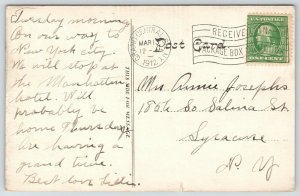 Tuesday morning
On our way to
New York city.
We will stop at
the Manhattan
hotel. Will
probably be
home Thursday
are having a
grand time.
Best love
THIS SIDE FOR MESSAGE
MAR
12
1912
RECEIVED
PACKAGE BOX
Post Card
ONE CENT
Mrs. Annie Josephs
So. Salina St
Syracuse
N. Y